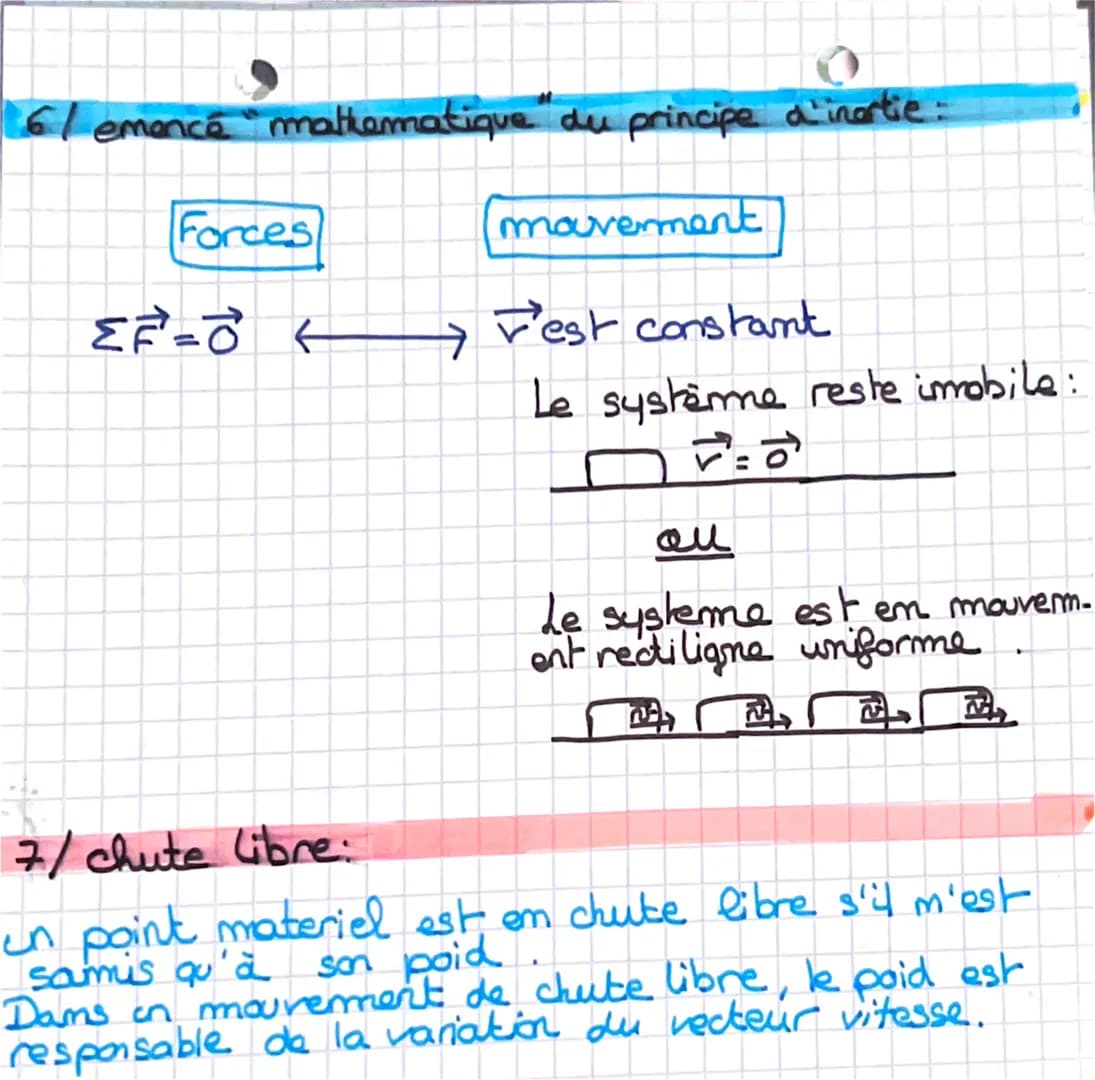 6/ emoncé "mathematique" du principe d'inertie :
Forces mouvement
ΣF⃗ = 0⃗ ⟷ v⃗ est constant
Le système reste imobile :
v⃗ = 0⃗
ou
Le systeme est en mouvem-
ent rectiligne uniforme .
v⃗ v⃗ v⃗ v⃗
7/ chute libre :
un point materiel est en chute libre s'il n'est
soumis qu'à son poid .
Dans un mouvement de chute libre, le poid est
responsable de la variation du vecteur vitesse.